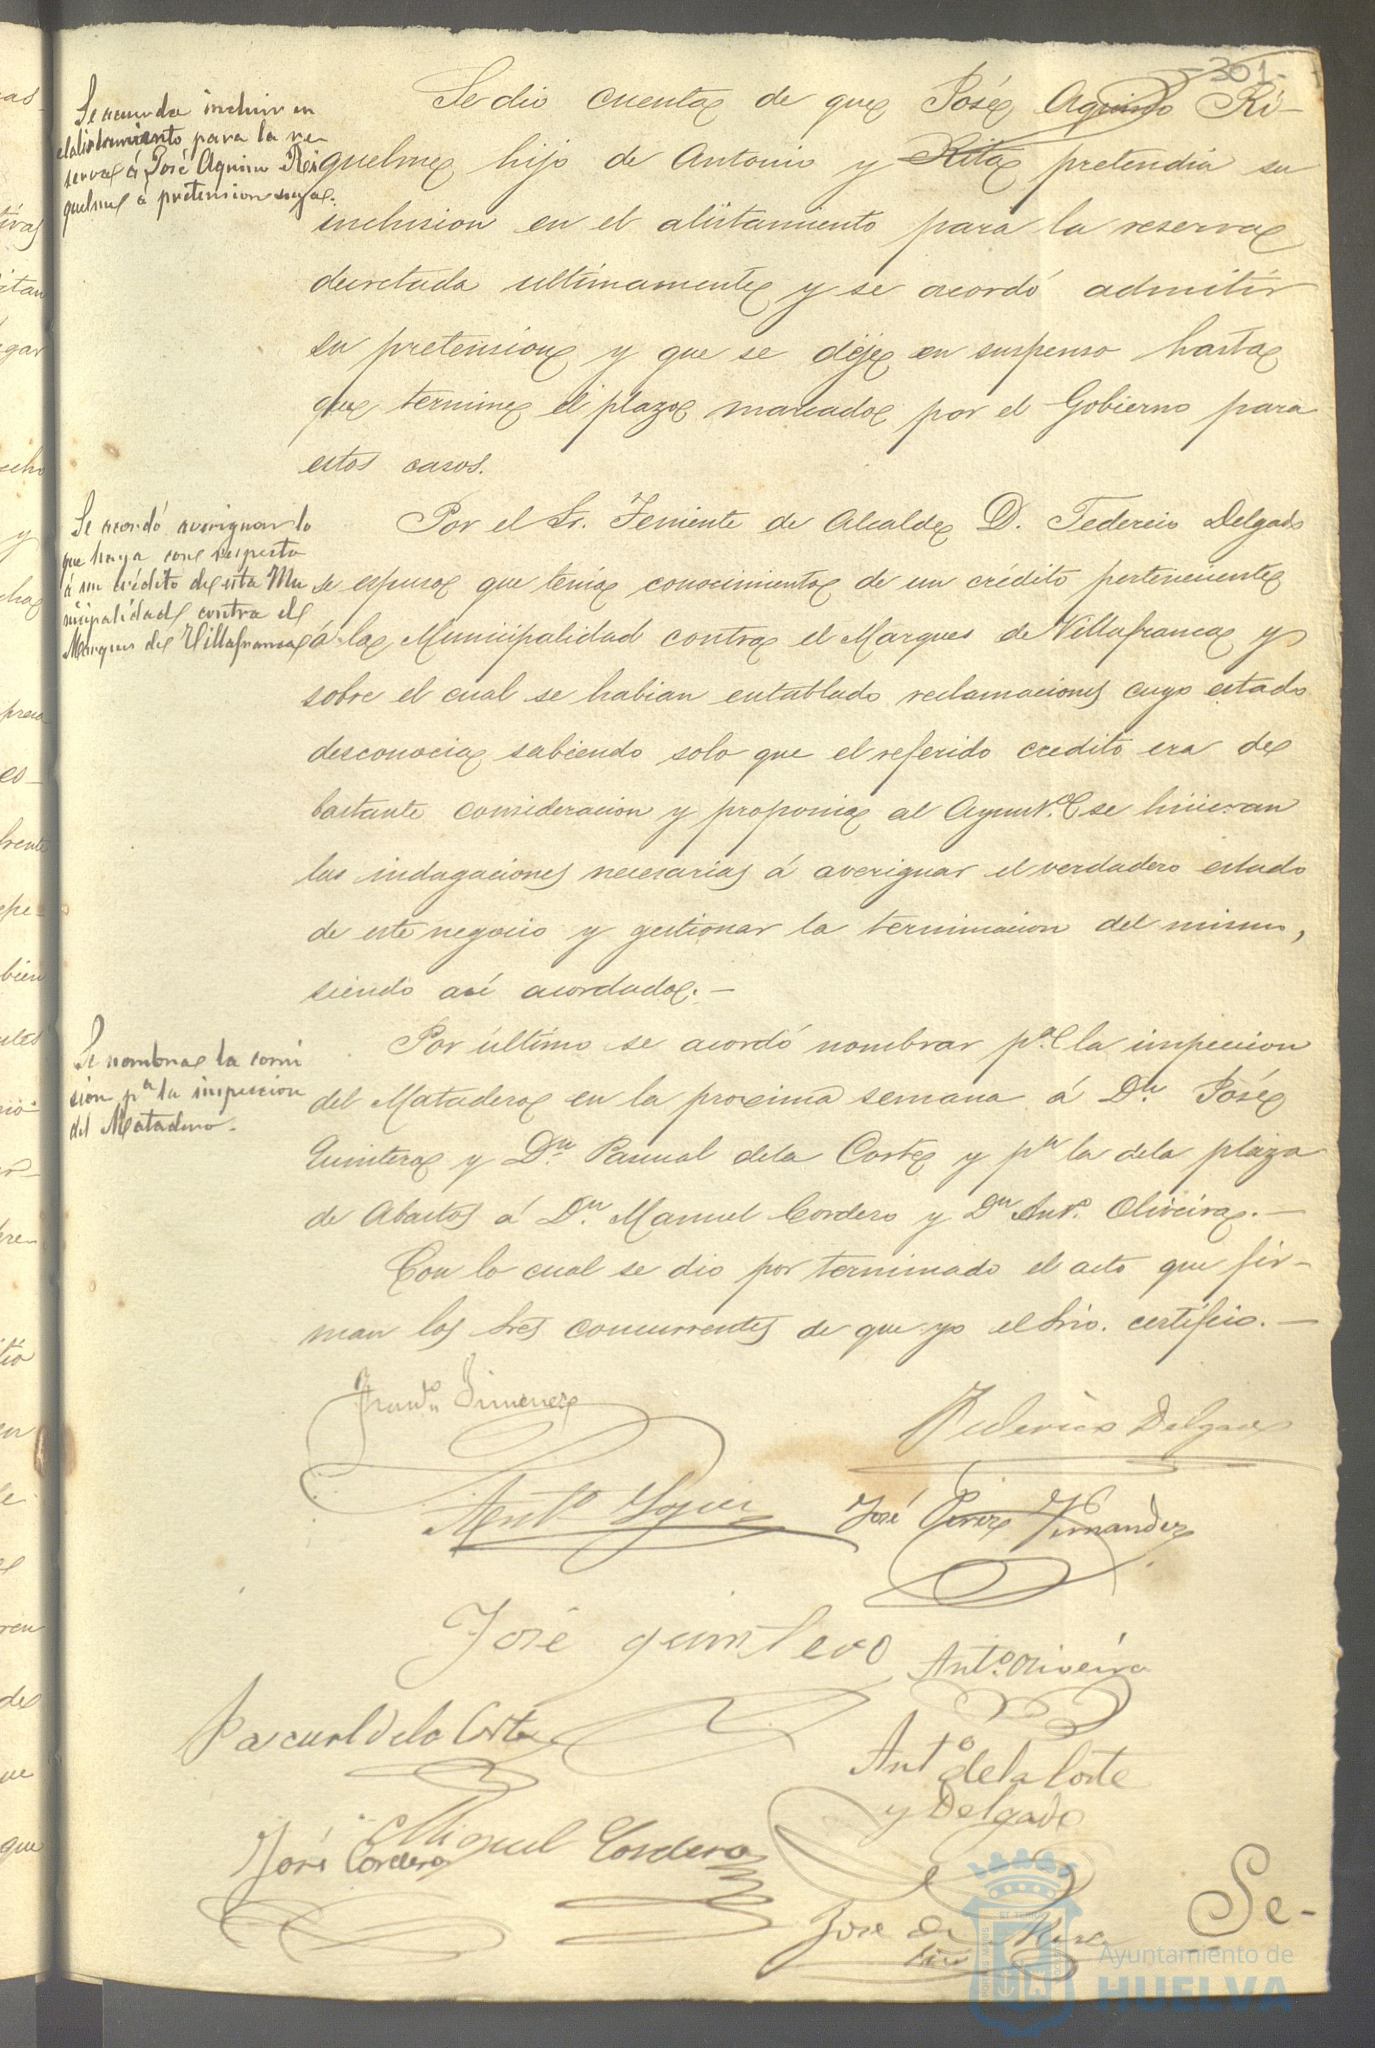 -301-
Se acuerda incluir en
el alistamiento para la re-
serva á José Aquino Ri
quelme á pretension suya.
Se dio cuenta de que José Aquino Ri-
quelme hijo de Antonio y Rita pretendia su
inclusion en el alistamiento para la reserva
decretada ultimamente y se acordó admitir
su pretension y que se deje en suspenso hasta
que termine el plazo marcado por el Gobierno para
estos casos.
Se acordó averiguar lo
que haya con respecto
á un crédito de esta Mu
nicipalidad contra el
Marques de Villafranca
Por el Sr. Teniente de Alcalde D. Federico Delgado
se espuso que tenia conocimiento de un crédito perteneciente
á la Municipalidad contra el Marques de Villafranca y
sobre el cual se habian entablado reclamaciones cuyo estado
desconocia sabiendo solo que el referido credito era de
bastante consideracion y proponia al Ayunto. se hicieran
las indagaciones necesarias á averiguar el verdadero estado
de este negocio y gestionar la terminacion del mismo,
siendo asi acordado.—
Se nombra la comi
sion pa la inspeccion
del Matadero.
Por último se acordó nombrar pa. la inspeccion
del Matadero en la procsima semana á Dn. José
Quintero y Dn. Pascual de la Corte y pa la de la plaza
de Abastos á Dn. Manuel Cordero y Dn Anto. Oliveira.—
Con lo cual se dio por terminado el acto que fir-
man los Sres concurrentes de que yo el Srio. certifico.—
Franco. Jimenez
Federico Delgado
Anto
José Perez Fernandez
José quintero
Anto. Oliveira
Pascual de la Corte
Anto de la Corte
y Delgado
Miguel Cordero
José Cordero
José de
Srio
Se-
Ayuntamiento de
HUELVA